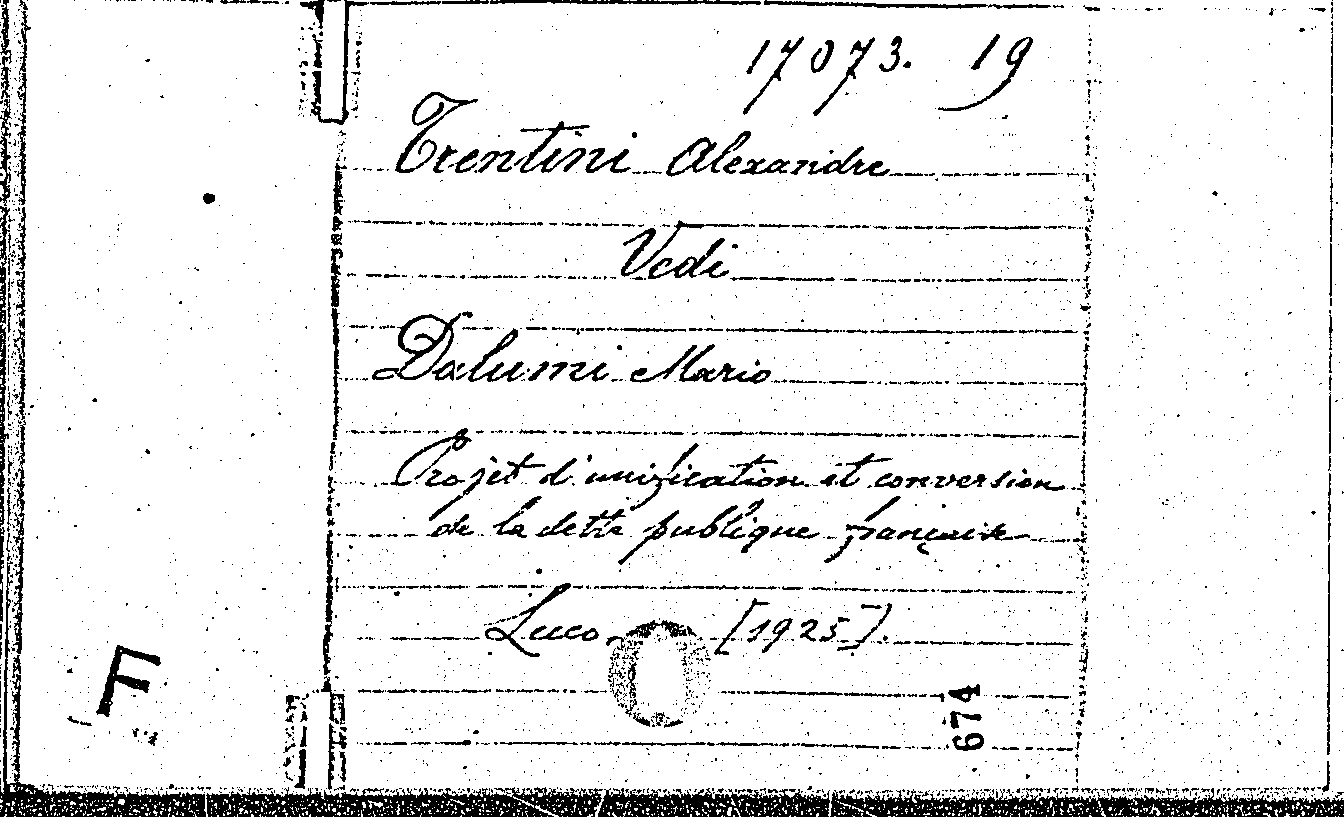 17073. 19
Trentini Alexandre
Vedi
Dalumi Mario
Projet d'unification et conversion
de la dette publique française
Luco, [1925].
F
674